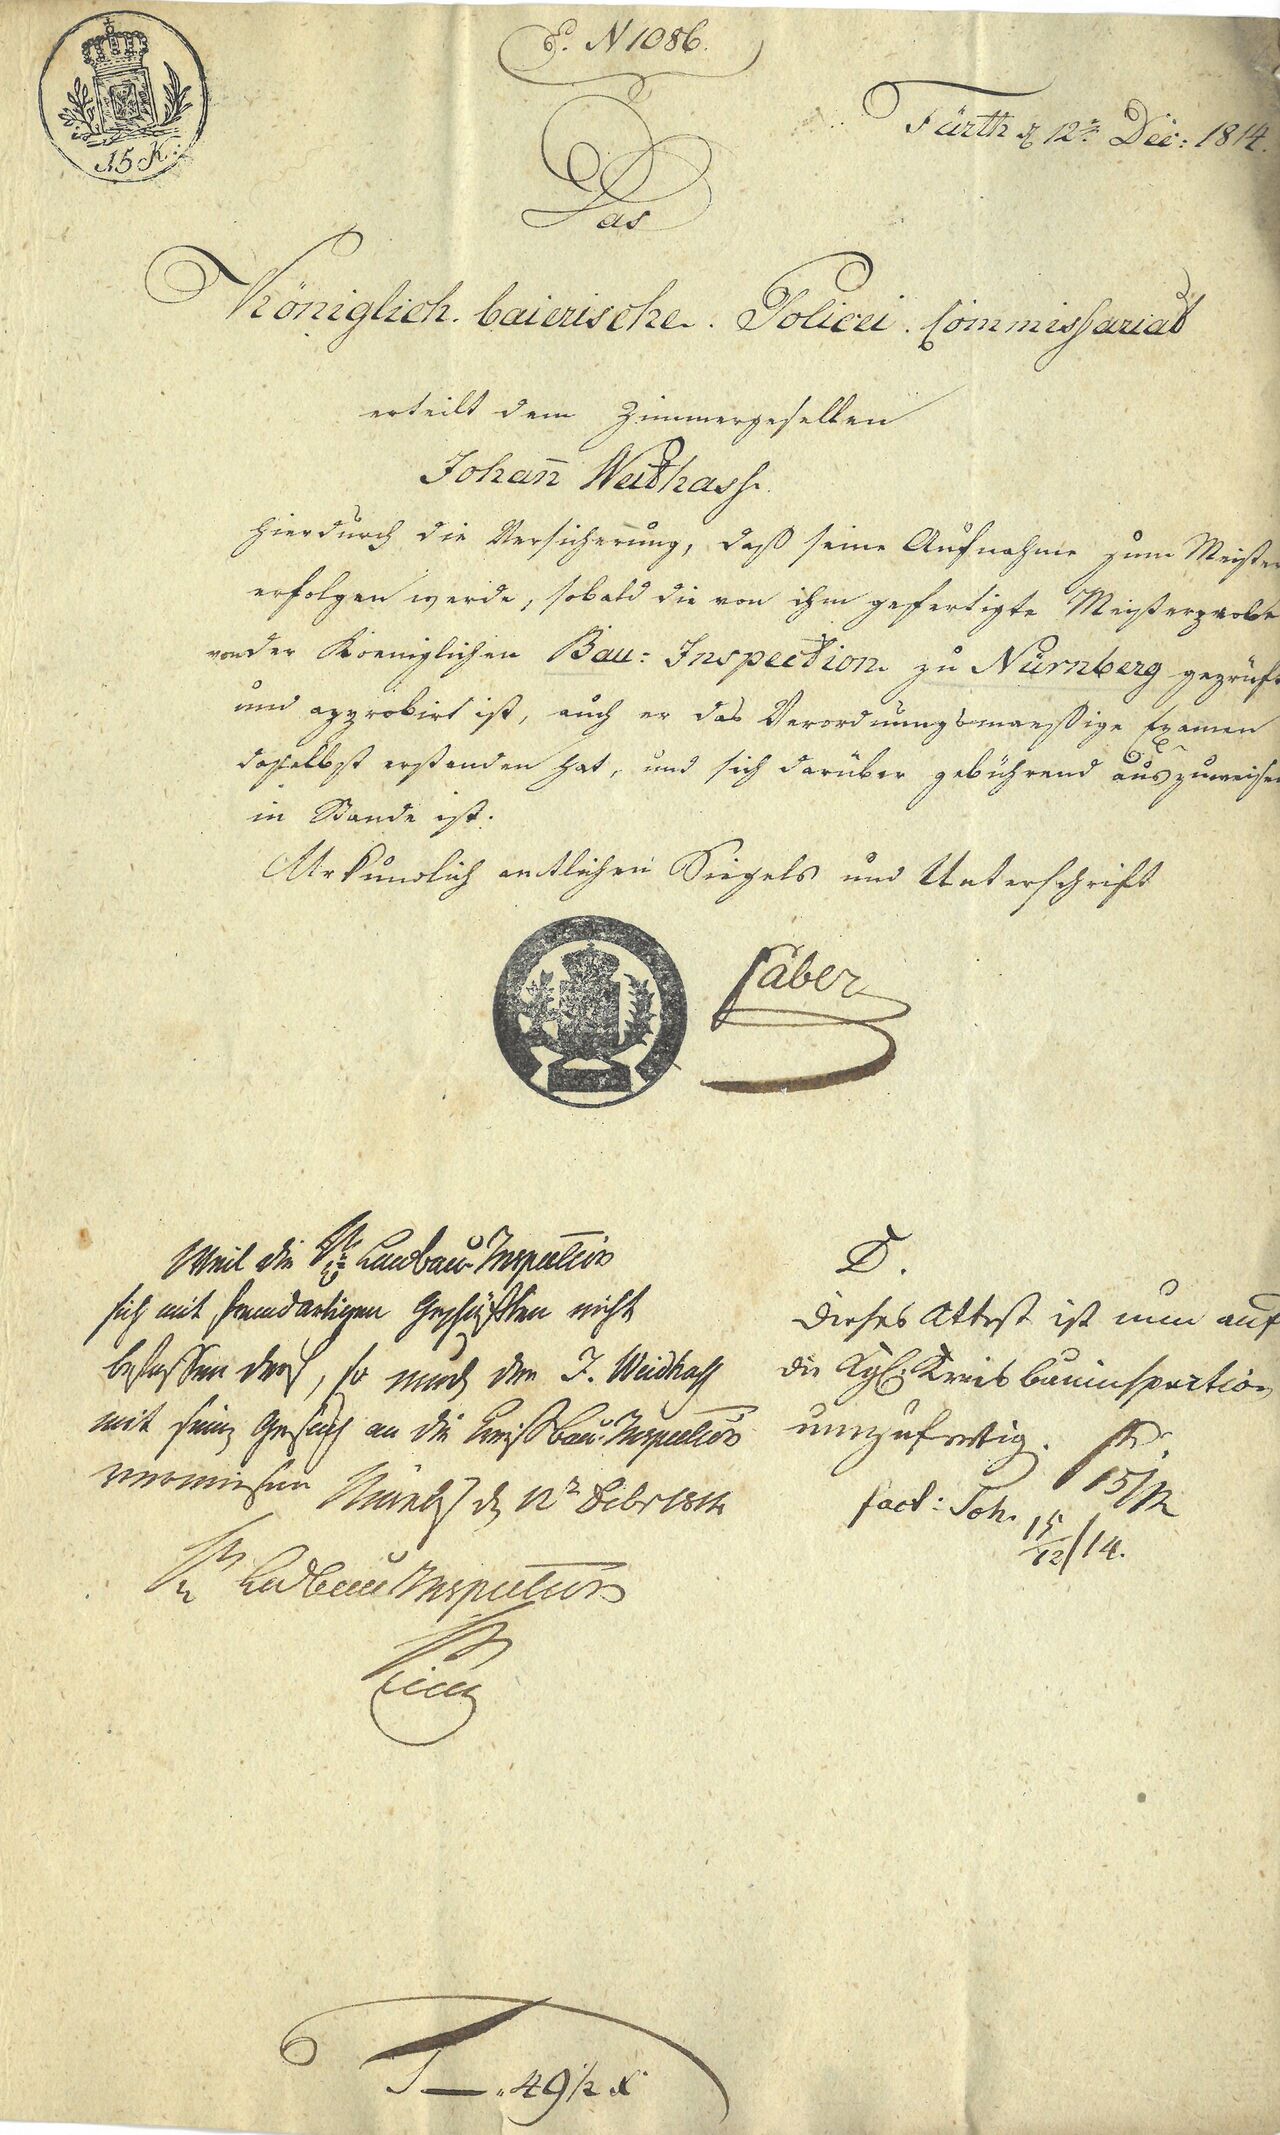 15 K.
E. N 1086.
Fürth d 12ten Dec: 1814.
Das
Königlich. baierische. Policei. Commissariat
erteilt dem Zimmergesellen
Johan̄ Weithass.
hierdurch die Versicherung, daß seine Aufnahme zum Meister
erfolgen werde, sobald die von ihm gefertigte Meisterprobe
von der Koeniglichen Bau-Inspection zu Nürnberg geprüft
und approbirt ist, auch er das Verordnungsmaessige Examen
daselbst erstanden hat, und sich darüber gebührend auszuweisen
in Stande ist.
Urkundlich amtlichen Siegels und Unterschrift
Faber
Weil die Landbau-Inspection
sich mit fremdartigen Geschäften nicht
befassen darf, so muß der J. Weidhaß
mit sein Gesuch an die Kreißbau-Inspection
D.
Dieses Attest ist nun auf
die Kgl. Kreisbauinspection
umzufertig.
15/12
fact: Joh. 15/12/14.
Landbau Inspection
49 1/2 x